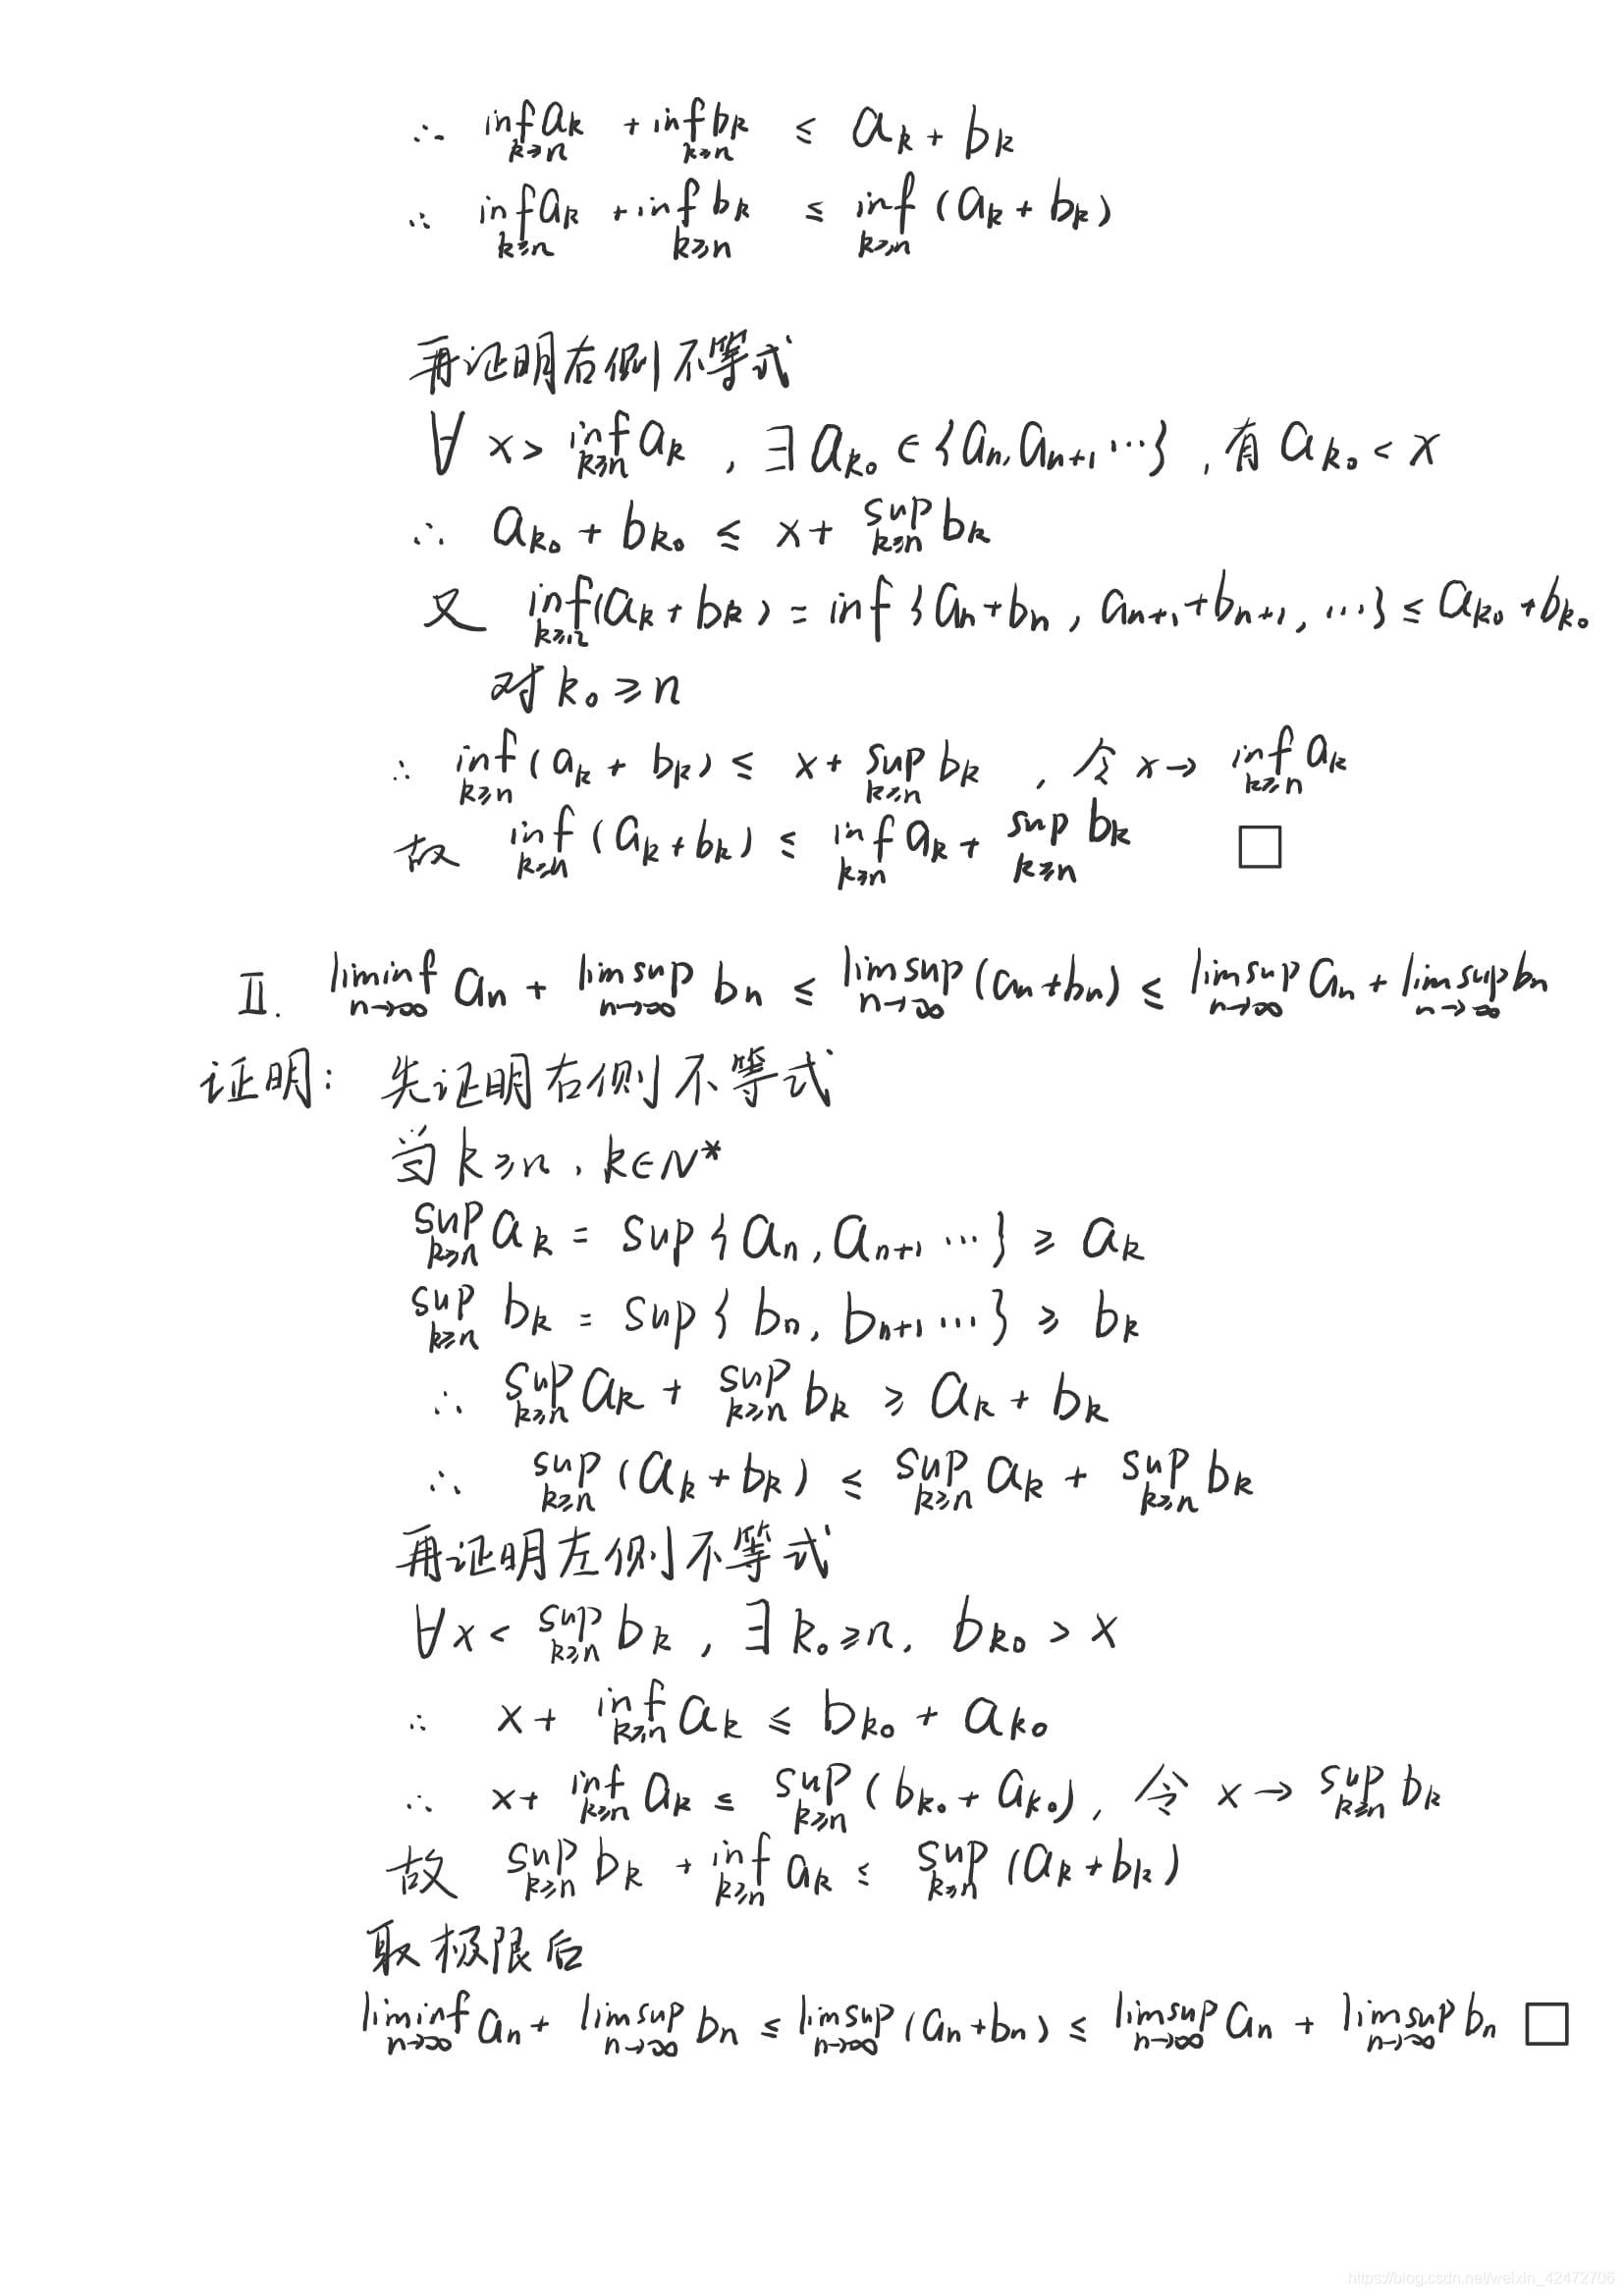 ∴ inf_{k≥n} a_k + inf_{k≥n} b_k ≤ a_k + b_k
∴ inf_{k≥n} a_k + inf_{k≥n} b_k ≤ inf_{k≥n} (a_k + b_k)
再证明右侧不等式
∀ x > inf_{k≥n} a_k , ∃ a_{k₀} ∈ {a_n, a_{n+1} ⋯} , 有 a_{k₀} < x
∴ a_{k₀} + b_{k₀} ≤ x + sup_{k≥n} b_k
又 inf_{k≥n} (a_k + b_k) = inf {a_n + b_n , a_{n+1} + b_{n+1} , ⋯} ≤ a_{k₀} + b_{k₀}
对 k₀ ≥ n
∴ inf_{k≥n} (a_k + b_k) ≤ x + sup_{k≥n} b_k , 令 x → inf_{k≥n} a_k
故 inf_{k≥n} (a_k + b_k) ≤ inf_{k≥n} a_k + sup_{k≥n} b_k □
Ⅱ. liminf_{n→∞} a_n + limsup_{n→∞} b_n ≤ limsup_{n→∞} (a_n + b_n) ≤ limsup_{n→∞} a_n + limsup_{n→∞} b_n
证明: 先证明右侧不等式
当 k ≥ n , k ∈ N*
sup_{k≥n} a_k = sup {a_n , a_{n+1} ⋯} ≥ a_k
sup_{k≥n} b_k = sup {b_n , b_{n+1} ⋯} ≥ b_k
∴ sup_{k≥n} a_k + sup_{k≥n} b_k ≥ a_k + b_k
∴ sup_{k≥n} (a_k + b_k) ≤ sup_{k≥n} a_k + sup_{k≥n} b_k
再证明左侧不等式
∀ x < sup_{k≥n} b_k , ∃ k₀ ≥ n , b_{k₀} > x
∴ x + inf_{k≥n} a_k ≤ b_{k₀} + a_{k₀}
∴ x + inf_{k≥n} a_k ≤ sup_{k≥n} (b_{k₀} + a_{k₀}) , 令 x → sup_{k≥n} b_k
故 sup_{k≥n} b_k + inf_{k≥n} a_k ≤ sup_{k≥n} (a_k + b_k)
取极限后
liminf_{n→∞} a_n + limsup_{n→∞} b_n ≤ limsup_{n→∞} (a_n + b_n) ≤ limsup_{n→∞} a_n + limsup_{n→∞} b_n □
https://blog.csdn.net/weixin_42472706